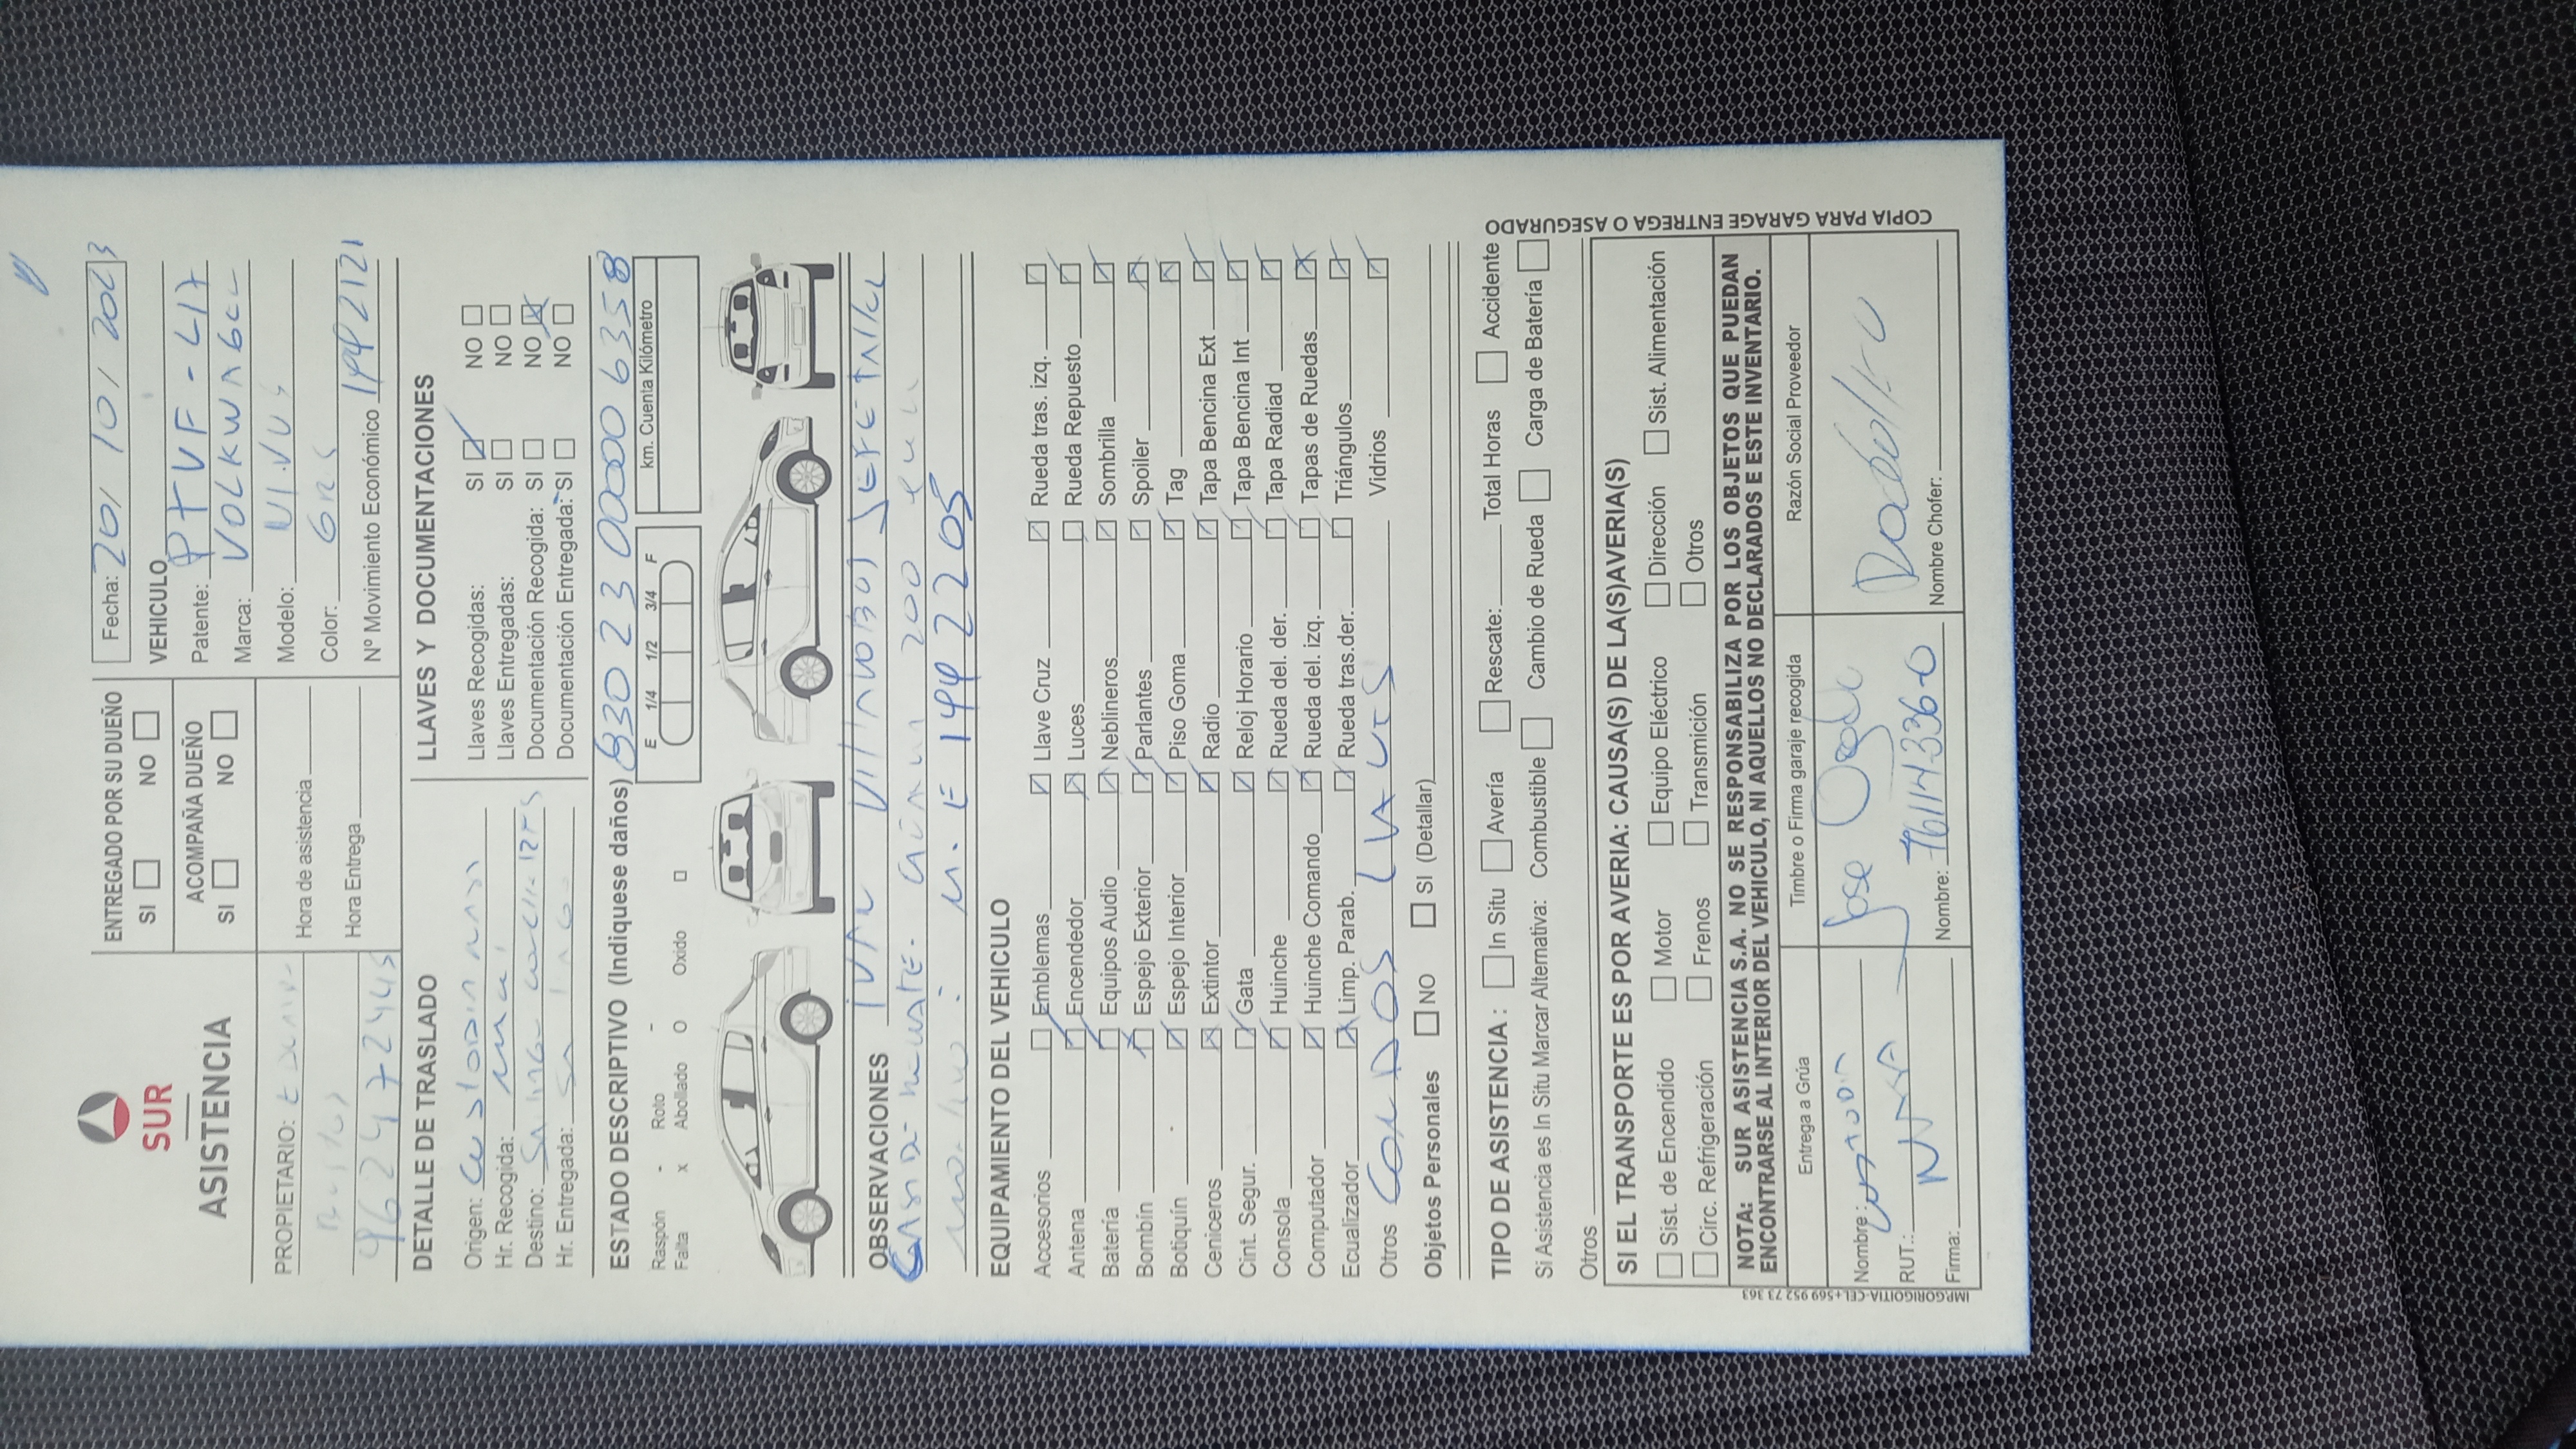 SUR
ASISTENCIA
ENTREGADO POR SU DUEÑO
SI NO
ACOMPAÑA DUEÑO
SI NO
Fecha: 20/10/2023
VEHICULO
Patente: PTVF-L17
Marca: VOLKWAGEL
Modelo:
Color: GRS
Nº Movimiento Económico 1442121
PROPIETARIO:
962472445
Hora de asistencia
Hora Entrega
DETALLE DE TRASLADO
Origen:
Hr. Recogida:
Destino:
Hr. Entregada:
LLAVES Y DOCUMENTACIONES
Llaves Recogidas: SI NO
Llaves Entregadas: SI NO
Documentación Recogida: SI NO
Documentación Entregada: SI NO
ESTADO DESCRIPTIVO (Indiquese daños) 83023000006358
Raspón - Roto -
Falta x Abollado O Oxido
E 1/4 1/2 3/4 F
km. Cuenta Kilómetro
OBSERVACIONES
M.E 1442205
EQUIPAMIENTO DEL VEHICULO
Accesorios Emblemas Llave Cruz Rueda tras. izq.
Antena Encendedor Luces Rueda Repuesto
Batería Equipos Audio Neblineros Sombrilla
Bombín Espejo Exterior Parlantes Spoiler
Botiquín Espejo Interior Piso Goma Tag
Ceniceros Extintor Radio Tapa Bencina Ext
Cint. Segur. Gata Reloj Horario Tapa Bencina Int
Consola Huinche Rueda del. der. Tapa Radiad
Computador Huinche Comando Rueda del. izq. Tapas de Ruedas
Ecualizador Limp. Parab. Rueda tras.der. Triángulos
Otros CON DOS LLAVES Vidrios
Objetos Personales NO SI (Detallar)
TIPO DE ASISTENCIA : In Situ Avería Rescate: Total Horas Accidente
Si Asistencia es In Situ Marcar Alternativa: Combustible Cambio de Rueda Carga de Batería
Otros
SI EL TRANSPORTE ES POR AVERIA: CAUSA(S) DE LA(S)AVERIA(S)
Sist. de Encendido Motor Equipo Eléctrico Dirección Sist. Alimentación
Circ. Refrigeración Frenos Transmición Otros
NOTA: SUR ASISTENCIA S.A. NO SE RESPONSABILIZA POR LOS OBJETOS QUE PUEDAN
ENCONTRARSE AL INTERIOR DEL VEHICULO, NI AQUELLOS NO DECLARADOS E ESTE INVENTARIO.
Entrega a Grúa
Timbre o Firma garaje recogida
Razón Social Proveedor
Nombre:
RUT.:
Firma:
Jose
Nombre: 76114336-0
Nombre Chofer:
COPIA PARA GARAGE ENTREGA O ASEGURADO
IMP.GORIGOITIA-CEL+569 952 73 363